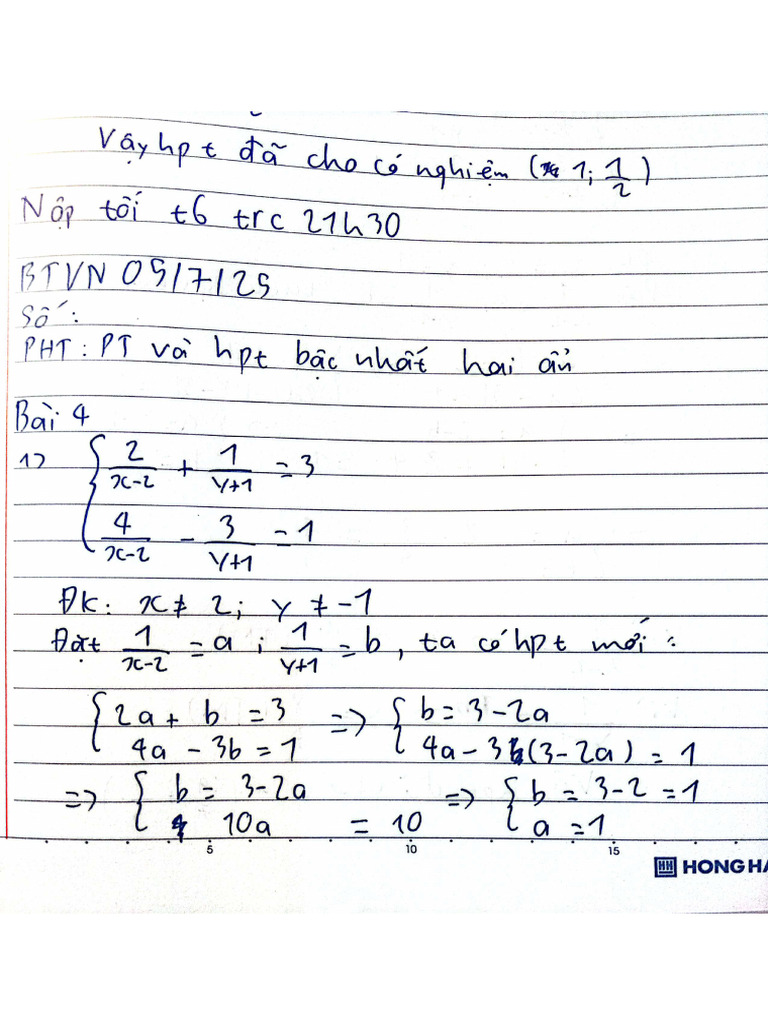 Vậy hpt đã cho có nghiệm (1; 1/2)
Nộp tối t6 trc 21h30
BTVN 05/7/25
Số:
PHT: PT và hpt bậc nhất hai ẩn
Bài 4
1> { 2/(x-2) + 1/(y+1) = 3
4/(x-2) - 3/(y+1) = 1
ĐK: x ≠ 2; y ≠ -1
Đặt 1/(x-2) = a; 1/(y+1) = b, ta có hpt mới:
{ 2a + b = 3 => { b = 3-2a
4a - 3b = 1 4a-3(3-2a) = 1
=> { b = 3-2a => { b = 3-2 = 1
10a = 10 a = 1
5 10 15
HONG HA